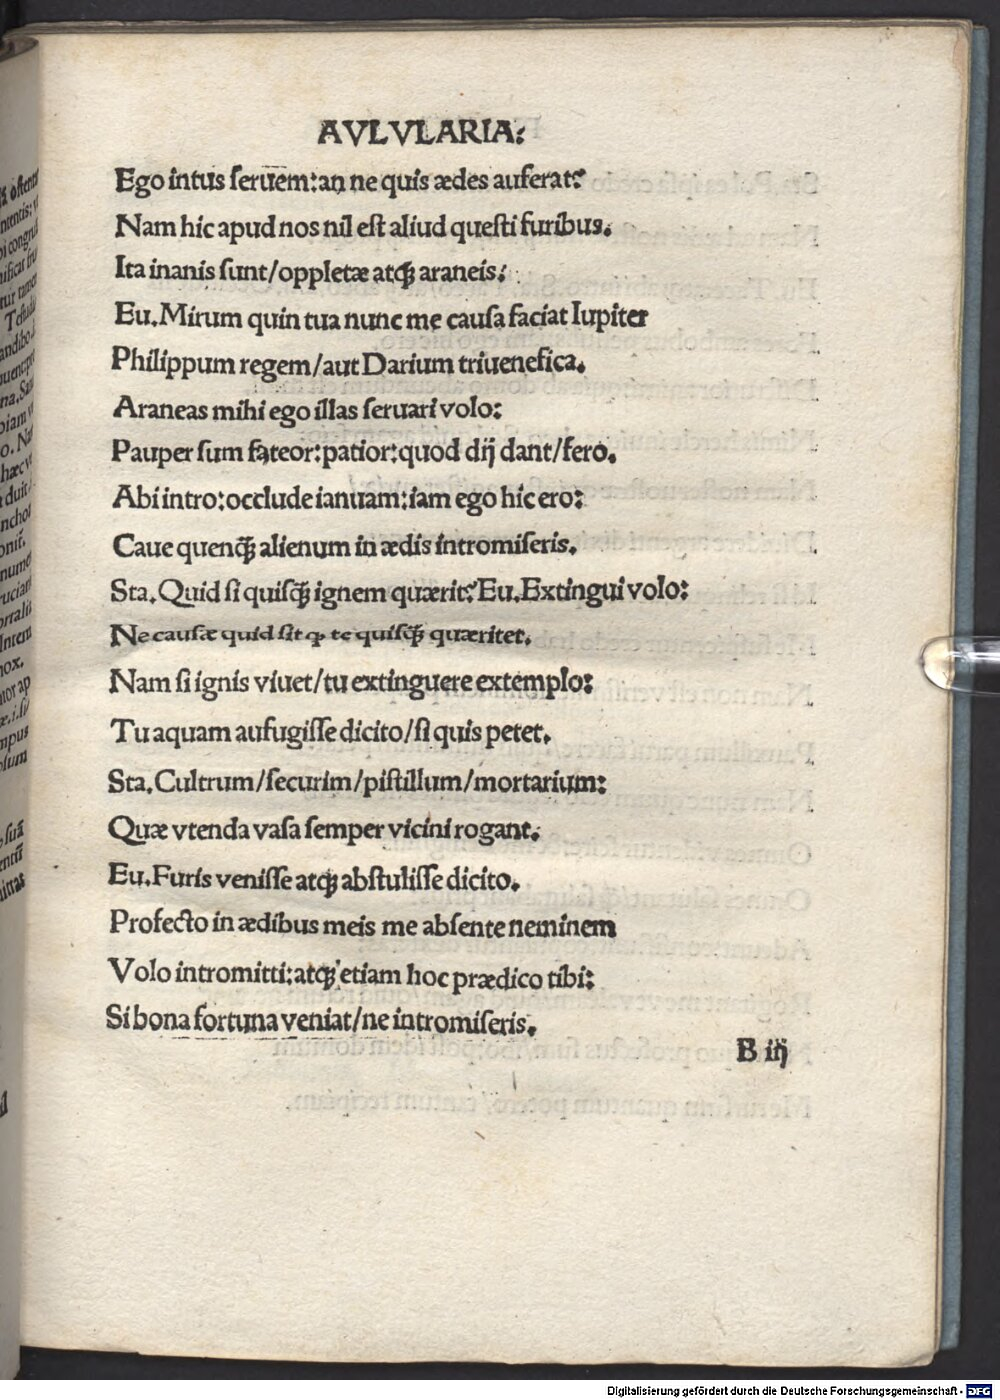 AVLVLARIA:
Ego intus seruem: an ne quis ædes auferat?
Nam hic apud nos nil est aliud questi furibus.
Ita inanis sunt/oppletæ atqꝫ araneis:
Eu. Mirum quin tua nunc me causa faciat Iupiter
Philippum regem/aut Darium triuenefica.
Araneas mihi ego illas seruari volo:
Pauper sum fateor: patior: quod dij dant/fero.
Abi intro: occlude ianuam: iam ego hic ero:
Caue quenqꝫ alienum in ædis intromiseris.
Sta. Quid si quisqꝫ ignem quærit? Eu. Extingui volo:
Ne causæ quid sit ꝙ te quisqꝫ quæritet.
Nam si ignis viuet/tu extinguere extemplo:
Tu aquam aufugisse dicito/si quis petet.
Sta. Cultrum/securim/pistillum/mortarium:
Quæ vtenda vasa semper vicini rogant.
Eu. Furis venisse atqꝫ abstulisse dicito.
Profecto in ædibus meis me absente neminem
Volo intromitti: atqꝫ etiam hoc prædico tibi:
Si bona fortuna veniat/ne intromiseris.
B iij
Digitalisierung gefördert durch die Deutsche Forschungsgemeinschaft - DFG